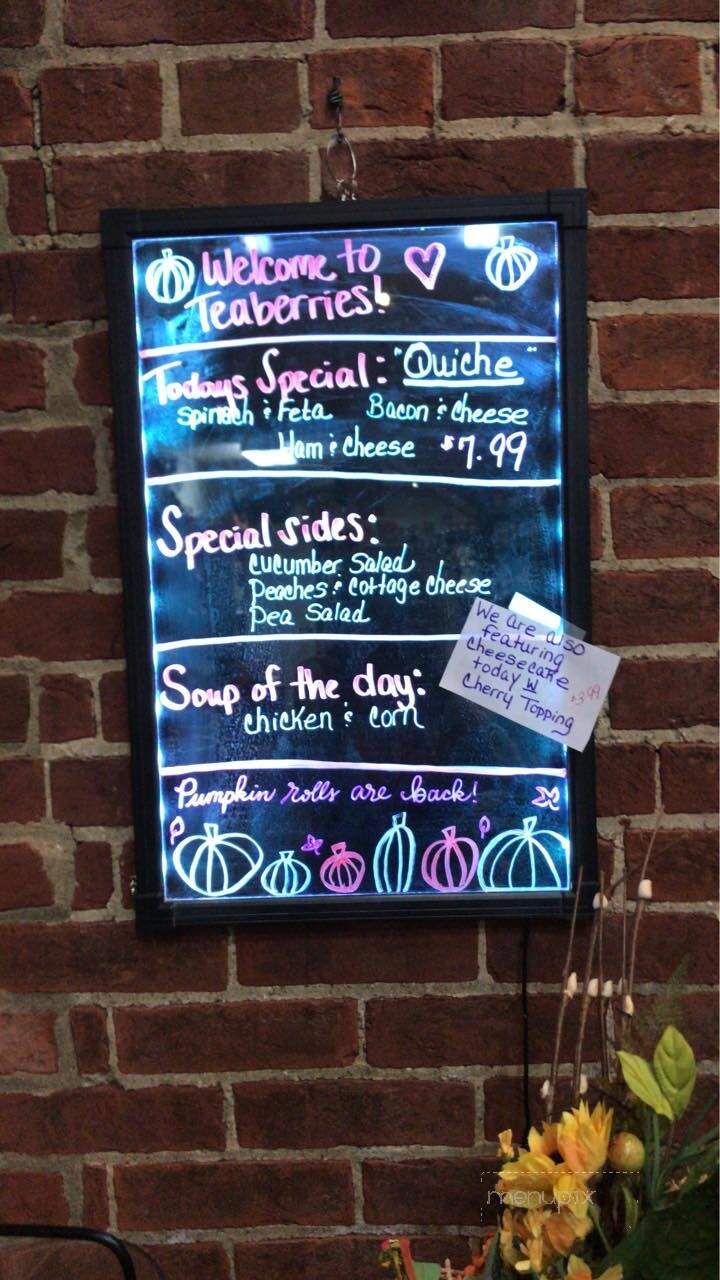 Welcome to
Teaberries!
Todays Special: "Quiche"
Spinach & Feta Bacon & Cheese
Ham & Cheese $7.99
Special sides:
Cucumber Salad
Peaches & Cottage Cheese
Pea Salad
Soup of the day:
chicken & corn
We are also
featuring
cheesecake
today W
Cherry Topping
$3.99
Pumpkin rolls are back!
menupix